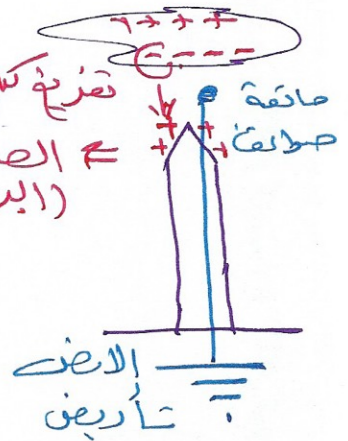 + + + +
- - - -
تفريغ
مانعة
صواعق
+ +
+ +
⇐ الص
(الب
الارض
تأريض